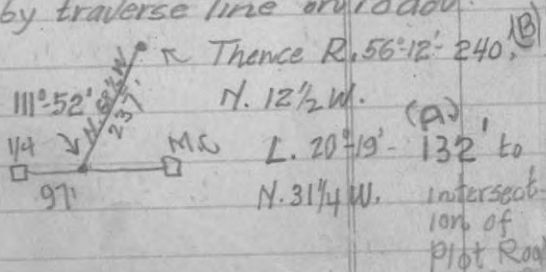 by traverse line on road.
Thence R. 56°-12'- 240' (B)
111°-52'
237'
N. 12½ W.
(A)
1/4
M.C.
L. 20°-19'- 132' to
97'
N. 31¼ W. intersect-
ion of
Plot Road